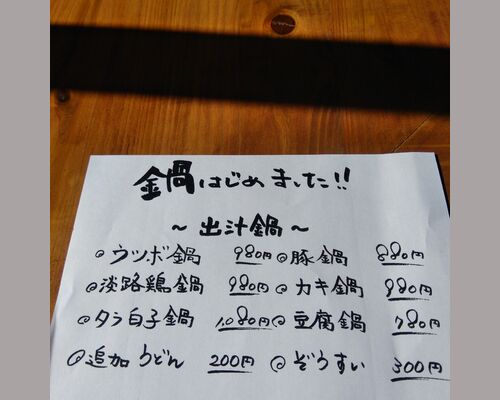 鍋はじめました!!
~ 出汁鍋 ~
◎ウツボ鍋 980円 ◎豚鍋 880円
◎淡路鶏鍋 980円 ◎カキ鍋 980円
◎タラ白子鍋 1,080円 ◎豆腐鍋 780円
◎追加うどん 200円 ◎ぞうすい 300円